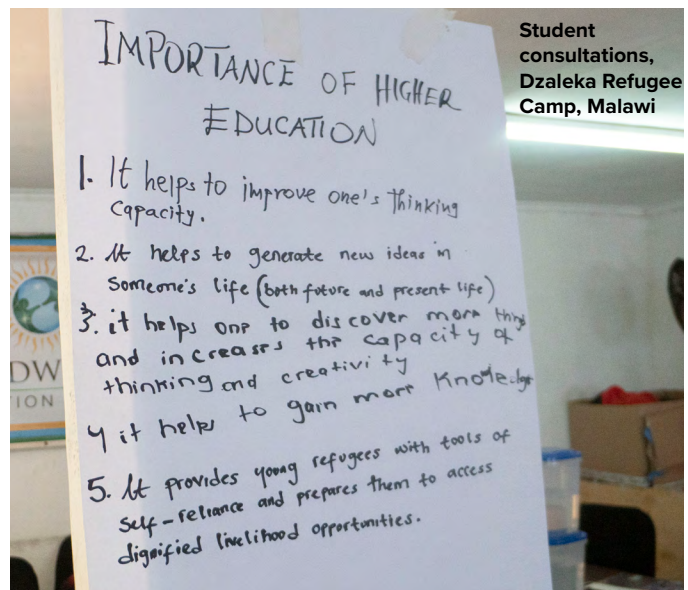 Student
consultations,
Dzaleka Refugee
Camp, Malawi
IMPORTANCE OF HIGHER
EDUCATION
1. It helps to improve one's thinking
capacity.
2. It helps to generate new ideas in
someone's life (both future and present life)
3. it helps one to discover more things
and increases the capacity of
thinking and creativity
4 it helps to gain more Knowledge
5. It provides young refugees with tools of
self-reliance and prepares them to access
dignified livelihood opportunities.
DW
ION